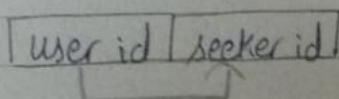 user id seeker id